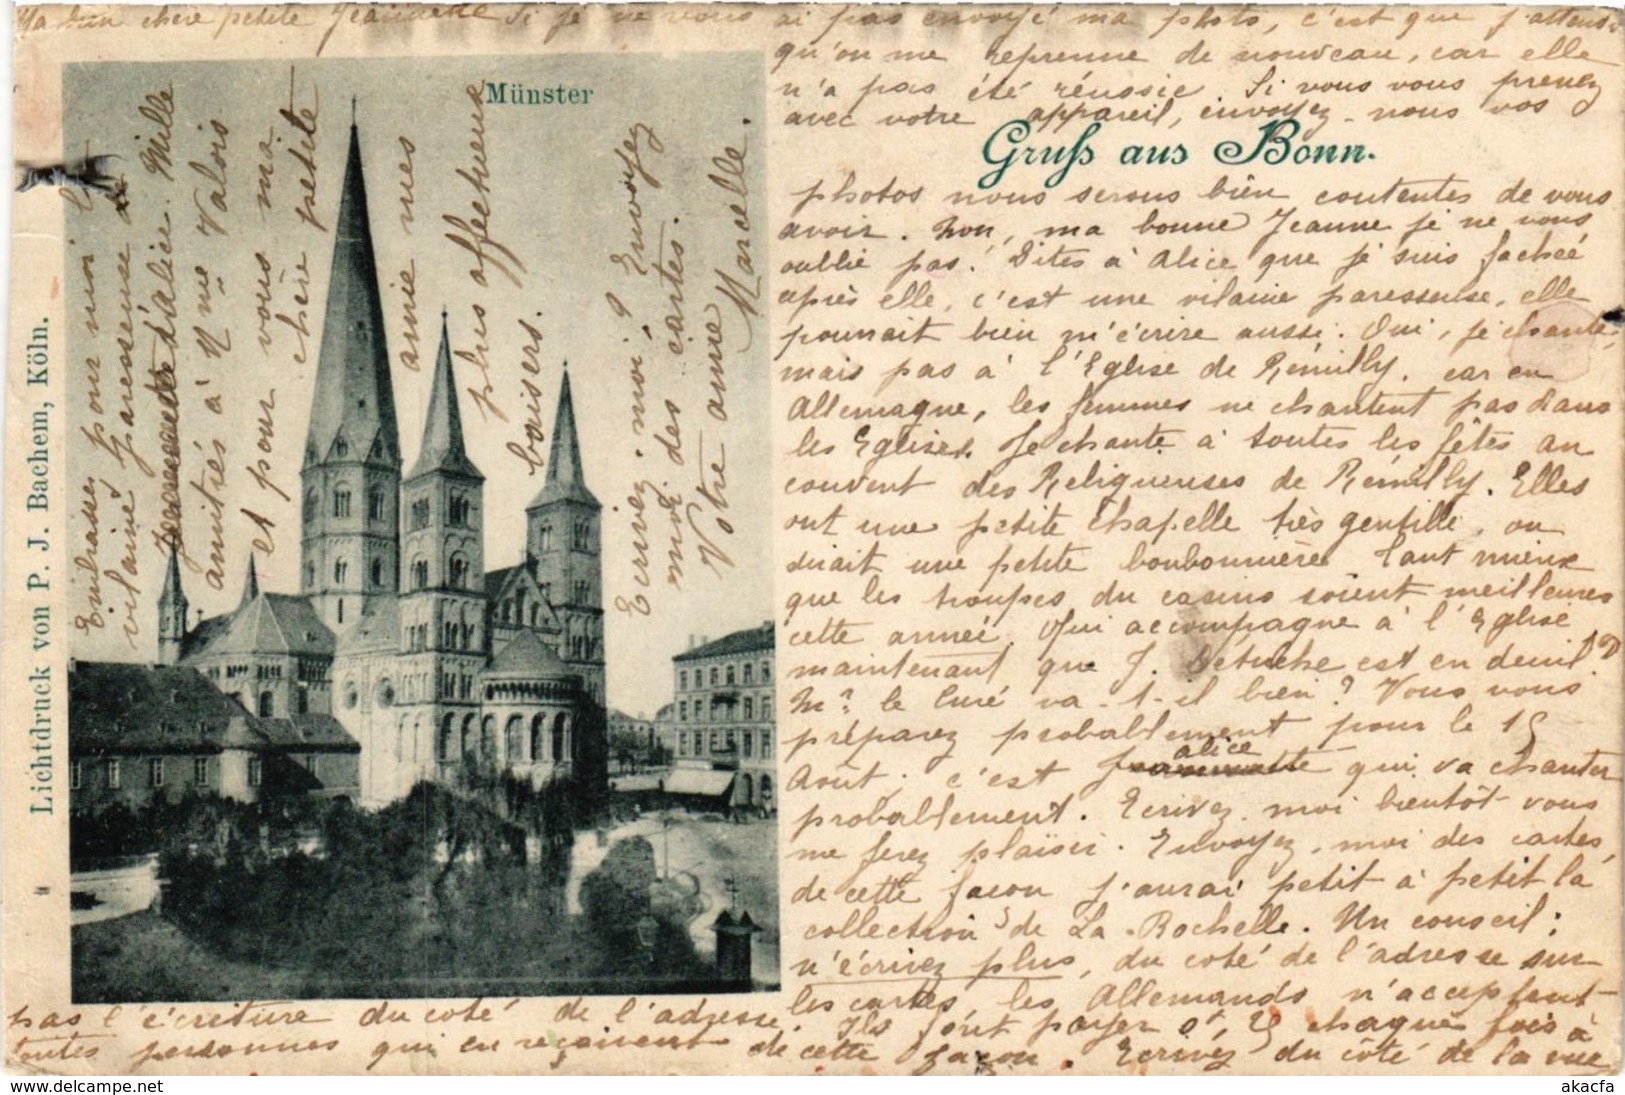 Ma bien chère petite Jeannette Si je ne vous ai pas envoyé ma photo, c'est que j'attends
qu'on me reprenne de nouveau, car elle
n'a pas été réussie. Si vous vous prenez
avec votre appareil, envoyez-nous vos
Gruß aus Bonn.
photos nous serons bien contentes de vous
avoir. Non, ma bonne Jeanne je ne vous
oublie pas! Dites à Alice que je suis fachée
après elle, c'est une vilaine paresseuse, elle
pourrait bien m'écrire aussi. Oui, je chante,
mais pas à l'Eglise de Rémilly, car en
Allemagne, les femmes ne chantent pas dans
les Eglises. Je chante à toutes les fêtes au
couvent des Religieuses de Rémilly. Elles
ont une petite chapelle très gentille, on
dirait une petite bonbonnière. Tant mieux
que les troupes du casino soient meilleures
cette année. Qui accompagne à l'Eglise
maintenant que J. Detuche est en deuil?
Mr le Curé va-t-il bien? Vous vous
préparez probablement pour le 15
Août; c'est alice qui va chanter
probablement. Ecrivez-moi bientôt vous
me ferez plaisir. Envoyez-moi des cartes,
de cette façon j'aurai petit à petit la
collection de La Rochelle. Un conseil:
n'écrivez plus, du coté de l'adresse sur
les cartes, les Allemands n'acceptent
pas l'écriture du coté de l'adresse. Ils font payer 0f,25 chaque fois à
toutes personnes qui en reçoivent de cette façon. Ecrivez du côté de la vue
Münster
Embrassez pour moi la
vilaine paresseuse de
Jeannette d'Alice. Mille
amitiés à Mme Valois
et pour vous ma
chère petite
amie mes
plus affectueux
baisers.
Ecrivez-moi? Envoyez
moi des cartes.
Votre amie
Marcelle.
Lichtdruck von P. J. Bachem, Köln.
akacfa
delcampe.net